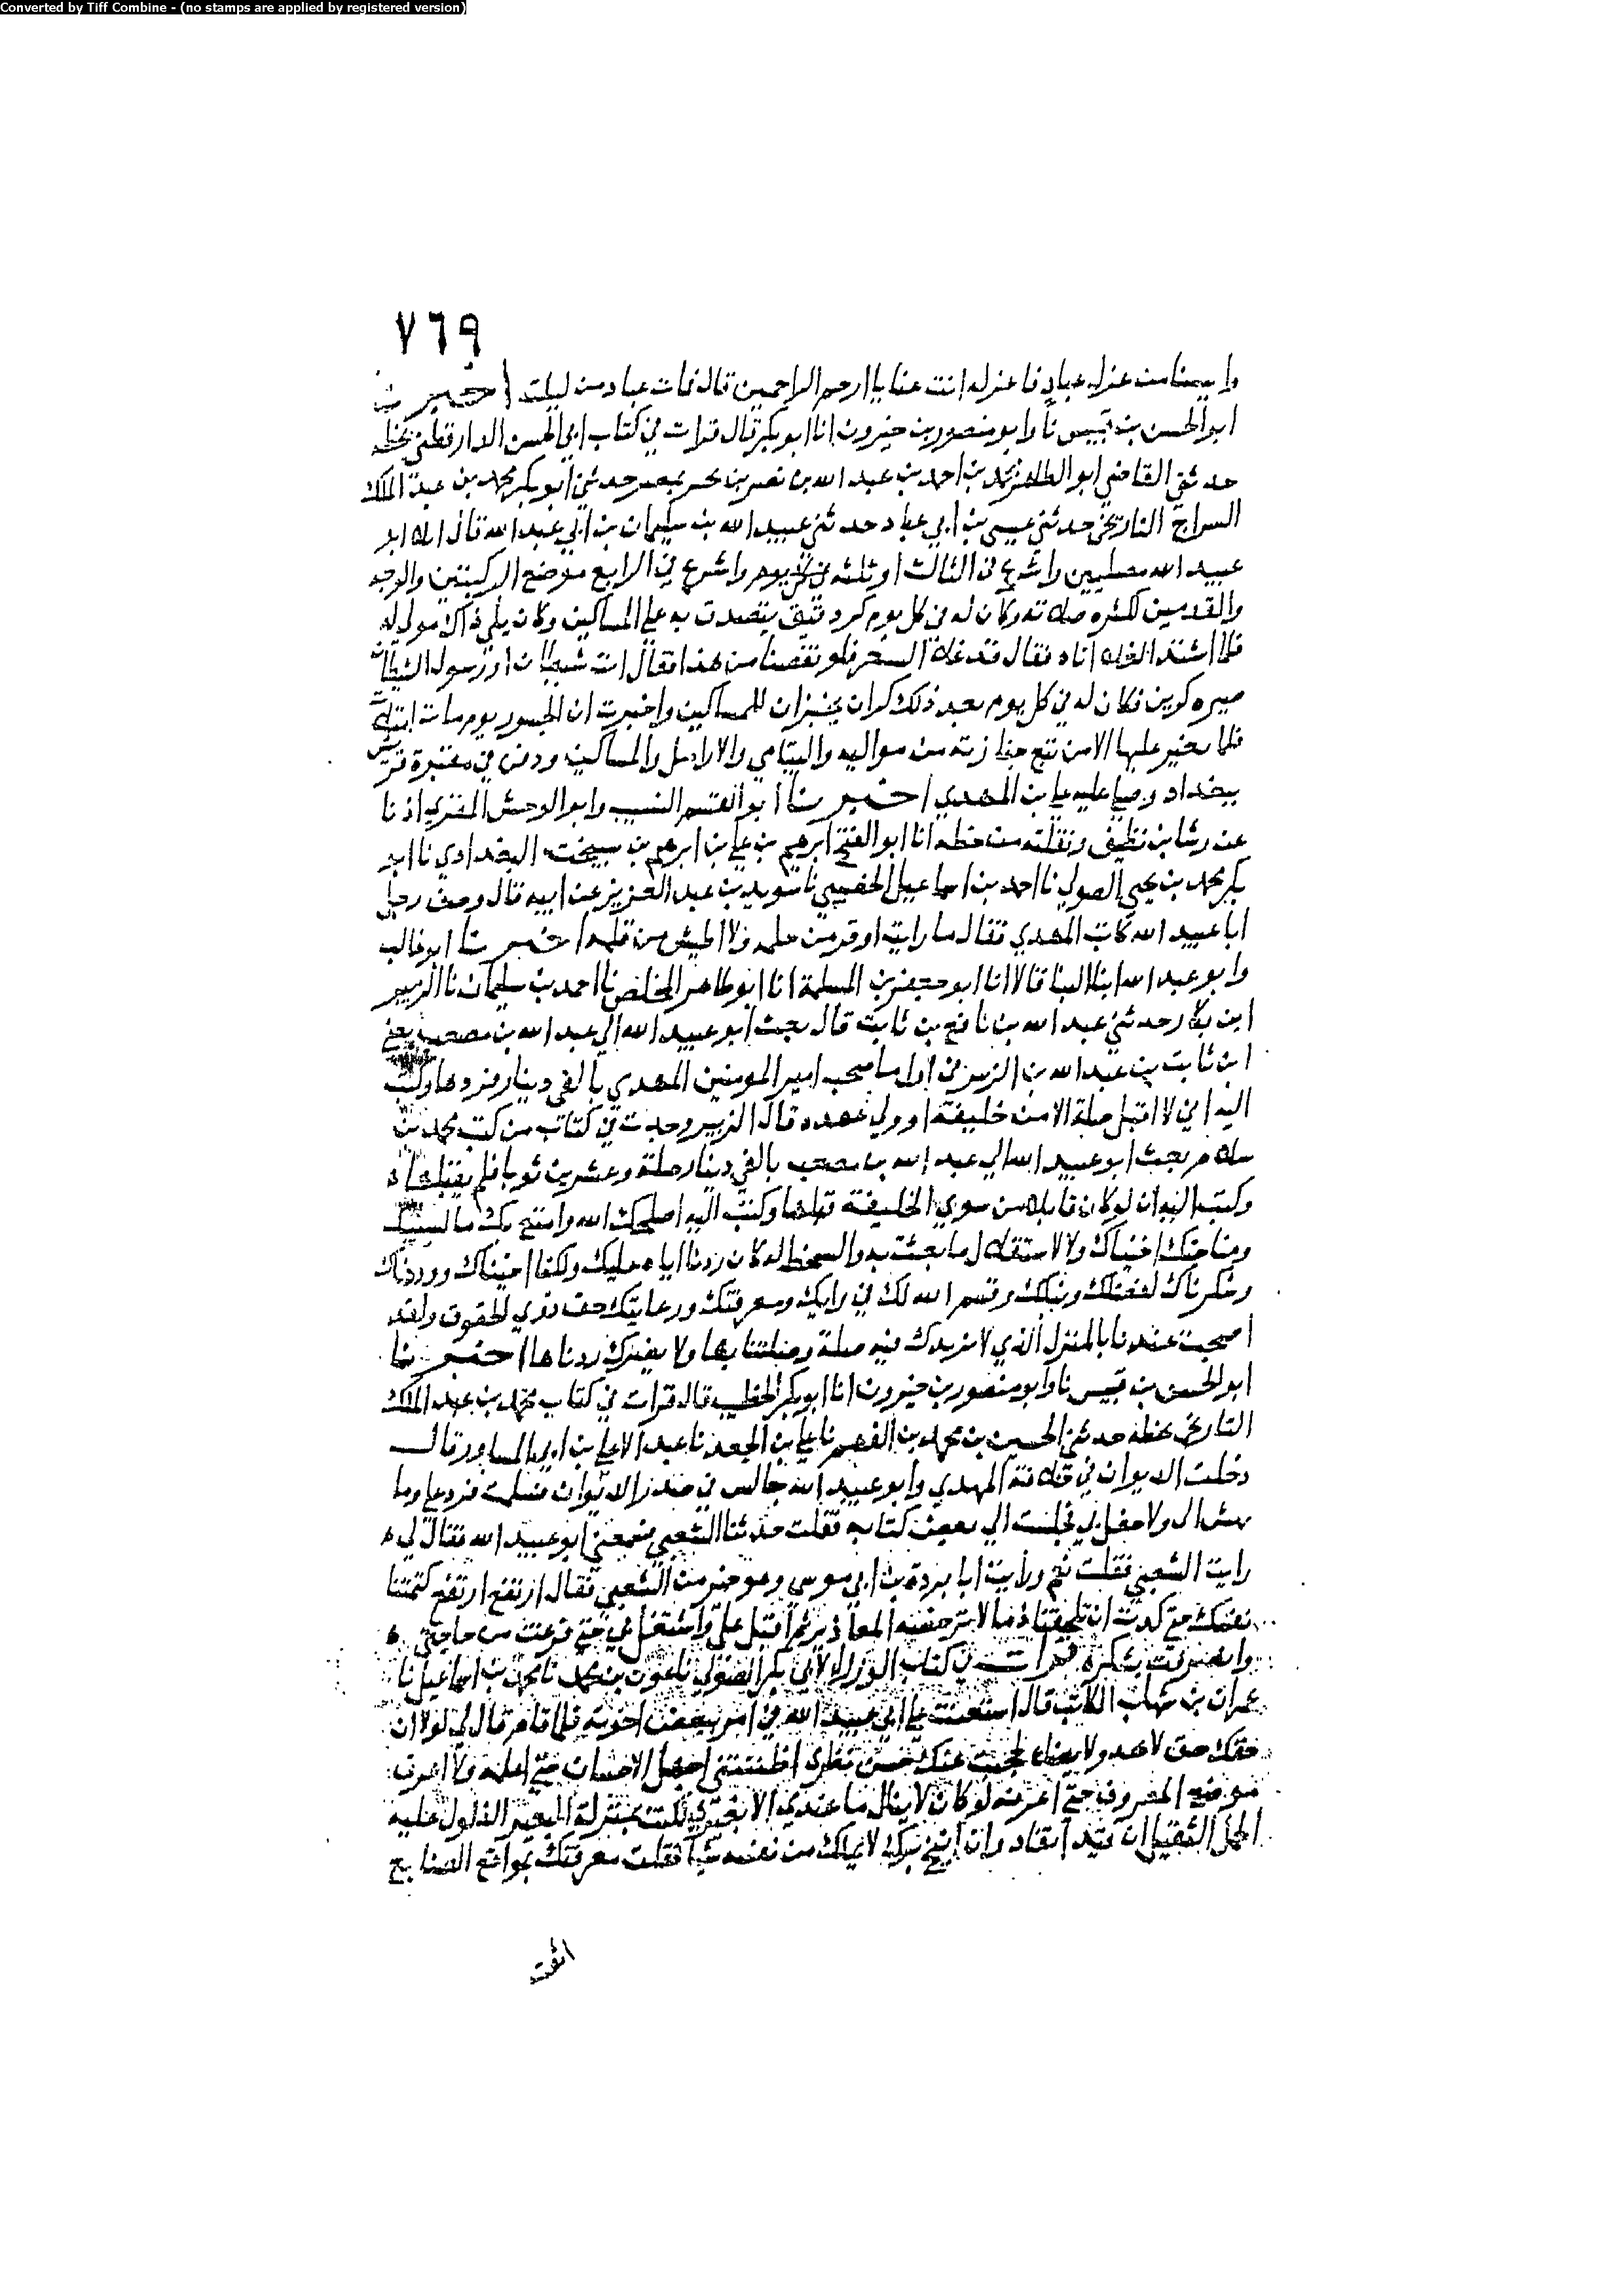 Converted by Tiff Combine - (no stamps are applied by registered version)
٧٦٩
وايسنا من عزل عباد فاعزله انت عنا يا ارحم الراحمين قال فمات عباد من ليلته اخبرنا
ابو الحسن بن قبيس نا وابو منصور بن خيرون انا ابو بكر قال قرات في كتاب ابي الحسن الدارقطني بخطه
حدثني القاضي ابو الطاهر محمد بن احمد بن عبد الله بن نصر بن بحير بمصر حدثني ابو بكر محمد بن عبد الملك
السراج التاريخي حدثني عيسى بن ابي عباد حدثني عبيد الله بن سليمان بن ابي عبيد الله قال ابلا ابو
عبيد الله مصليين واشرع في الثالث او ثلثه في يوم واشرع في الرابع موضع الركبتين والوجه
والقدمين لكثره صلاته وكان له في كل يوم كر دقيق يتصدق به على المساكين وكان يلي ذلك مولى له
فلما اشتد الغلاء اتاه فقال قد غلا السعر فلو نقصنا من هذا فقال انت شيطان او رسول الشيطان
صيره كرين فكان له في كل يوم بعد ذلك كران يخبزان للمساكين واخبرت ان الجسور يوم مات امتلأت
فلم يعبر عليها الا من تبع جنازته من مواليه واليتامي والارامل والمساكين ودفن في مقبرة قريش
ببغداد وصلى عليه علي بن المهدي اخبرنا ابو القسم النسيب وابو الوحش المقري اذنا
عن رشا بن نظيف ونقلته من خطه انا ابو الفتح ابرهيم بن علي بن ابرهيم بن سيبخت البغدادي نا ابو
بكر محمد بن يحيى الصولي نا احمد بن اسماعيل الخصيبي نا سويد بن عبد العزيز عن ابيه قال وصف رجل
ابا عبيد الله كاتب المهدي فقال ما رايت اوقر من حلمه ولا اطيش من قلمه اخبرنا ابو غالب
وابو عبد الله ابنا البنا قالا انا ابو جعفر بن المسلمة انا ابو طاهر المخلص نا احمد بن سليمان نا الزبير
ابن بكار حدثني عبد الله بن نافع بن ثابت قال بعث ابو عبيد الله الى عبد الله بن مصعب يعني
ابن ثابت بن عبد الله بن الزبير في اول ما صحب امير المومنين المهدي بالفي دينار فردها وكتب
اليه اني لا اقبل صلة الا من خليفة او ولي عهد قال الزبير وجدت في كتاب من كتب محمد بن
سلام بعث ابو عبيد الله الى عبد الله بن مصعب بالفي دينار صلة وعشرين ثوبا فلم يقبلها
وكتب اليه ان لو كان قابلا من سوى الخليفة قبلها وكتب اليه اصلحك الله وامتع بك ما لسيبك
ومناحتك اخيناك ولا لاستقلال ما بعثت به والسخط له كان ردنا اياه عليك ولكنا اخيناك ووددناك
وشكرناك لفضلك ونبلك وقسم الله لك في رايك ومعرفتك ورعايتك حق ذوي الحقوق ولقد
اصبحت عندنا بالمنزل الذي لا تزيدك فيه صلة وصلتنا بها ولا يضرك ردناها اخبرنا
ابو الحسن بن قبيس نا وابو منصور بن خيرون انا ابو بكر الخطيب قال قرات في كتاب محمد بن عبد الملك
التاريخي بخطه حدثني الحسين بن محمد بن الفهم نا علي بن الجعد نا عبد الاعلى بن ابي المساور قال
دخلت الديوان في خلافة المهدي وابو عبيد الله جالس في صدر الديوان فسلمت فرد علي وما
هش الي ولا حفل بي فجلست الى بعض كتابه فقلت حدثنا الشعبي فسمعني ابو عبيد الله فقال لي
رايت الشعبي فقلت نعم ورايت ابا بردة بن ابي موسى وهو خير من الشعبي فقال ارتفع ارتفع كتمتنا
نفسك حتى كدت ان تلحقنا ذما لا ترحضه المعاذير ثم اقبل علي واشتغل بي حتى فرغت من حاجتي
وانصرفت بشكره قرات في كتاب الوزراء لابي بكر الصولي نا عون بن محمد نا محمد بن اسماعيل نا
عمران بن شهاب الكاتب قال استعنت على ابي عبيد الله في امر ببعض اخوته فلما قام قال لي لولا ان
حقك حق لا يجحد ولا يضاع لحجبت عنك حسن نظري اظننتني اجهل الاحسان حتى اعلمه ولا اعرف
موضع المعروف حتى اعرفه لو كان لا ينال ما عندي الا بغيري لكنت بمنزلة البعير الذلول عليه
الحمل الثقيل ان قيد انقاد وان انيخ برك لا يملك من نفسه شيا فقلت معرفتك بمواقع الصنايع
اثبت